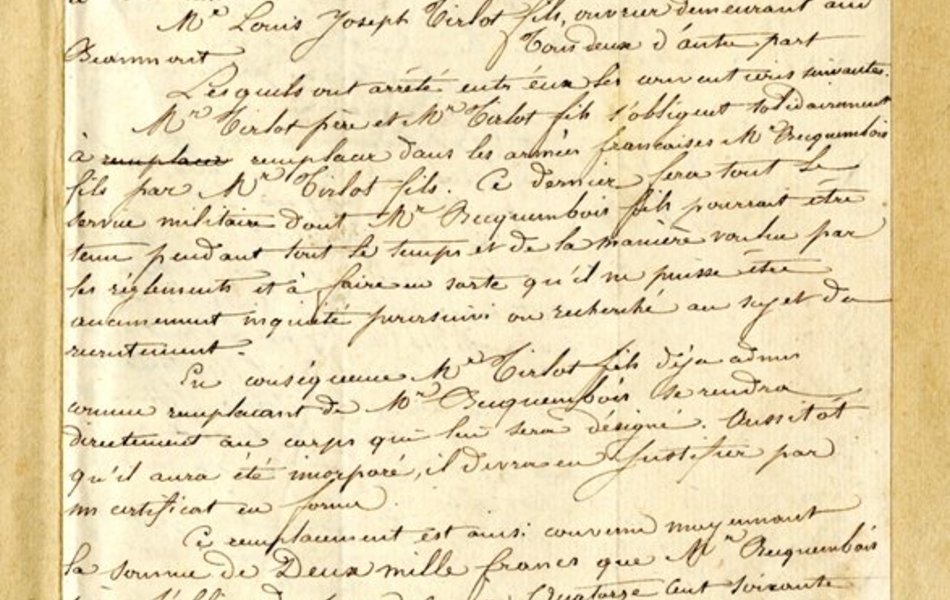 Mr Louis Joseph Tirlot fils, ouvrier demeurant au
Beaumont. Tous deux d'autre part
Lesquels ont arrêté entr'eux les conventions suivantes.
Mr Tirlot père et Mr Tirlot fils s'obligent solidairement
à remplacer remplacer dans les armées françaises Mr Becquembois
fils par Mr Tirlot fils. Ce dernier fera tout le
service militaire dont Mr Becquembois fils pourrait être
tenu pendant tout le temps et de la manière voulue par
les règlements et à faire en sorte qu'il ne puisse être
aucunement inquiété poursuivi ou recherché au sujet du
recrutement.
En conséquence Mr Tirlot fils déja admis
comme remplaçant de Mr Becquembois se rendra
directement au corps qui lui sera désigné. Aussitôt
qu'il aura été incorporé, il devra en justifier par
un certificat en forme.
Ce remplacement est ainsi convenu moyennant
la somme de Deux mille francs que Mr Becquembois
Quatorze Cent soixante